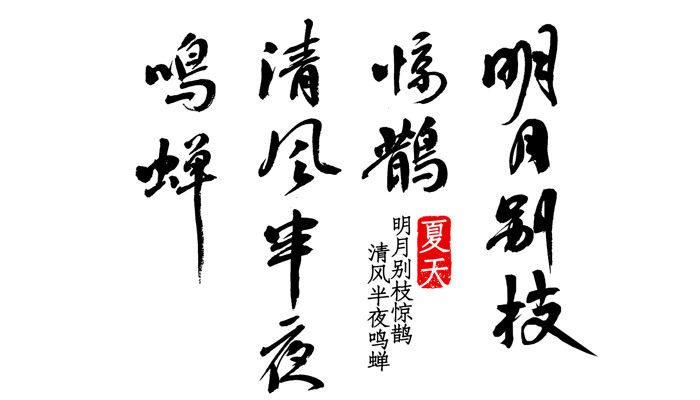 明月别枝
惊鹊
清风半夜
鸣蝉
夏天
明月别枝惊鹊
清风半夜鸣蝉